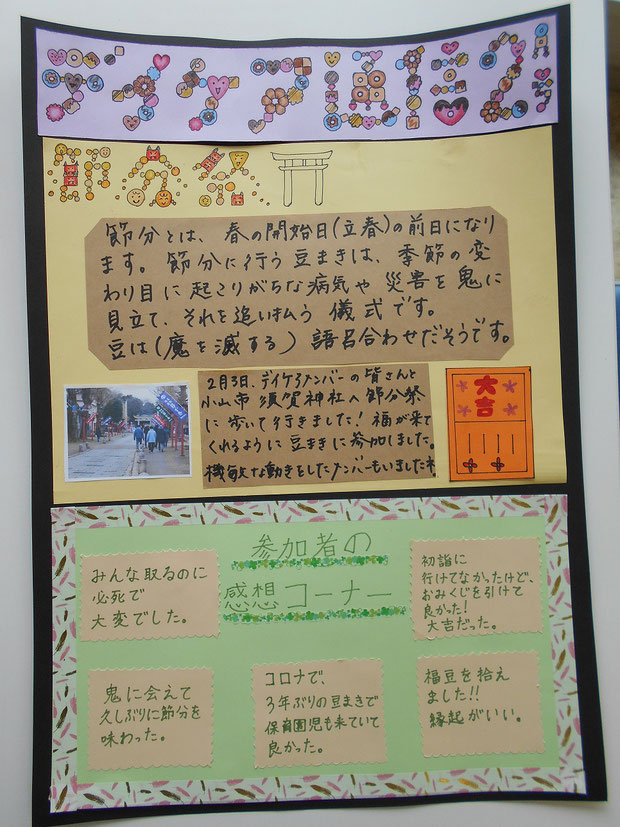 デイケア通信♪
節分祭
節分とは、春の開始日(立春)の前日になり
ます。節分に行う豆まきは、季節の変
わり目に起こりがちな病気や災害を鬼に
見立て、それを追い払う儀式です。
豆は(魔を滅する)語呂合わせだそうです。
2月3日、デイケアメンバーの皆さんと
小山市須賀神社へ節分祭
に歩いて行きました!福が来て
くれるように豆まきに参加しました。
機敏な動きをしたメンバーもいましたネ。
大吉
参加者の
感想コーナー
みんな取るのに
必死で
大変でした。
初詣に
行けてなかったけど、
おみくじを引けて
良かった!
大吉だった。
鬼に会えて
久しぶりに節分を
味わった。
コロナで、
3年ぶりの豆まきで
保育園児も来ていて
良かった。
福豆を拾え
ました!!
縁起がいい。